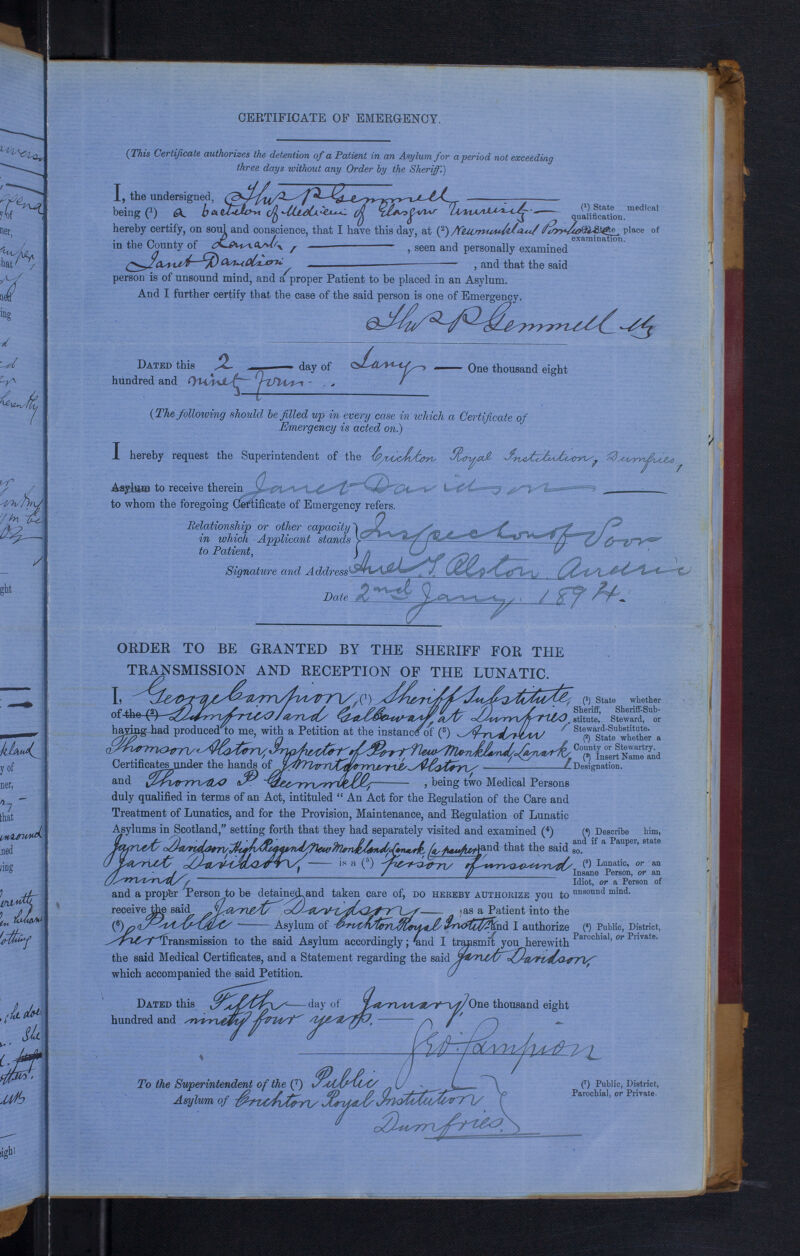 CERTIFICATE OF EMERGENCY.
(This Certificate authorizes the detention of a Patient in an Asylum for a period not exceeding
three days without any Order by the Sheriff.)
I, the undersigned, Thos P Gemmell
being (¹) a bachelor of Medicine of Glasgow University
(¹) State medical
qualification.
hereby certify, on soul and conscience, that I have this day, at (²) Newmonkland Poorhouse
(²) State place of
examination.
in the County of Lanark, , seen and personally examined
Janet Davidson , and that the said
person is of unsound mind, and a proper Patient to be placed in an Asylum.
And I further certify that the case of the said person is one of Emergency.
Thos P Gemmell MB
DATED this 2 day of Jany One thousand eight
hundred and ninety four
(The following should be filled up in every case in which a Certificate of
Emergency is acted on.)
I hereby request the Superintendent of the Crichton Royal Institution, Dumfries,
Asylum to receive therein Janet Davidson
to whom the foregoing Certificate of Emergency refers.
Relationship or other capacity
in which Applicant stands
to Patient,
Inspector of Poor
Signature and Address And T. Alston Airdrie
Date 2nd Jany. 1894.
ORDER TO BE GRANTED BY THE SHERIFF FOR THE
TRANSMISSION AND RECEPTION OF THE LUNATIC.
I, George Campion, (¹) Sheriff Substitute,
(¹) State whether
Sheriff, Sheriff-Sub-
stitute, Steward, or
Steward-Substitute.
of the (²) Dumfries and Galloway, at Dumfries,
having had produced to me, with a Petition at the instance of (³) Andrew
(²) State whether a
County or Stewartry.
Thomson Alston, Inspector of Poor New Monkland, Lanark,
(³) Insert Name and
Designation.
Certificates under the hands of J Montgomerie Alston,
and Thomas P Gemmell, , being two Medical Persons
duly qualified in terms of an Act, intituled " An Act for the Regulation of the Care and
Treatment of Lunatics, and for the Provision, Maintenance, and Regulation of Lunatic
Asylums in Scotland," setting forth that they had separately visited and examined (⁴)
(⁴) Describe him,
and if a Pauper, state
so.
Janet Davidson, High Riggend New Monkland, Lanark, (a pauper) and that the said
Janet Davidson, is a (⁵) person of unsound
(⁵) Lunatic, or an
Insane Person, or an
Idiot, or a Person of
unsound mind.
mind,
and a proper Person to be detained and taken care of, DO HEREBY AUTHORIZE you to
receive the said Janet Davidson, as a Patient into the
(⁶) Public Asylum of Crichton Royal Instit. and I authorize
(⁶) Public, District,
Parochial, or Private.
her Transmission to the said Asylum accordingly; and I transmit you herewith
the said Medical Certificates, and a Statement regarding the said Janet Davidson,
which accompanied the said Petition.
DATED this Fifth day of January One thousand eight
hundred and ninety four years.
Geo: Campion
To the Superintendent of the (⁷) Public
(⁷) Public, District,
Parochial, or Private.
Asylum of Crichton Royal Institution
Dumfries.